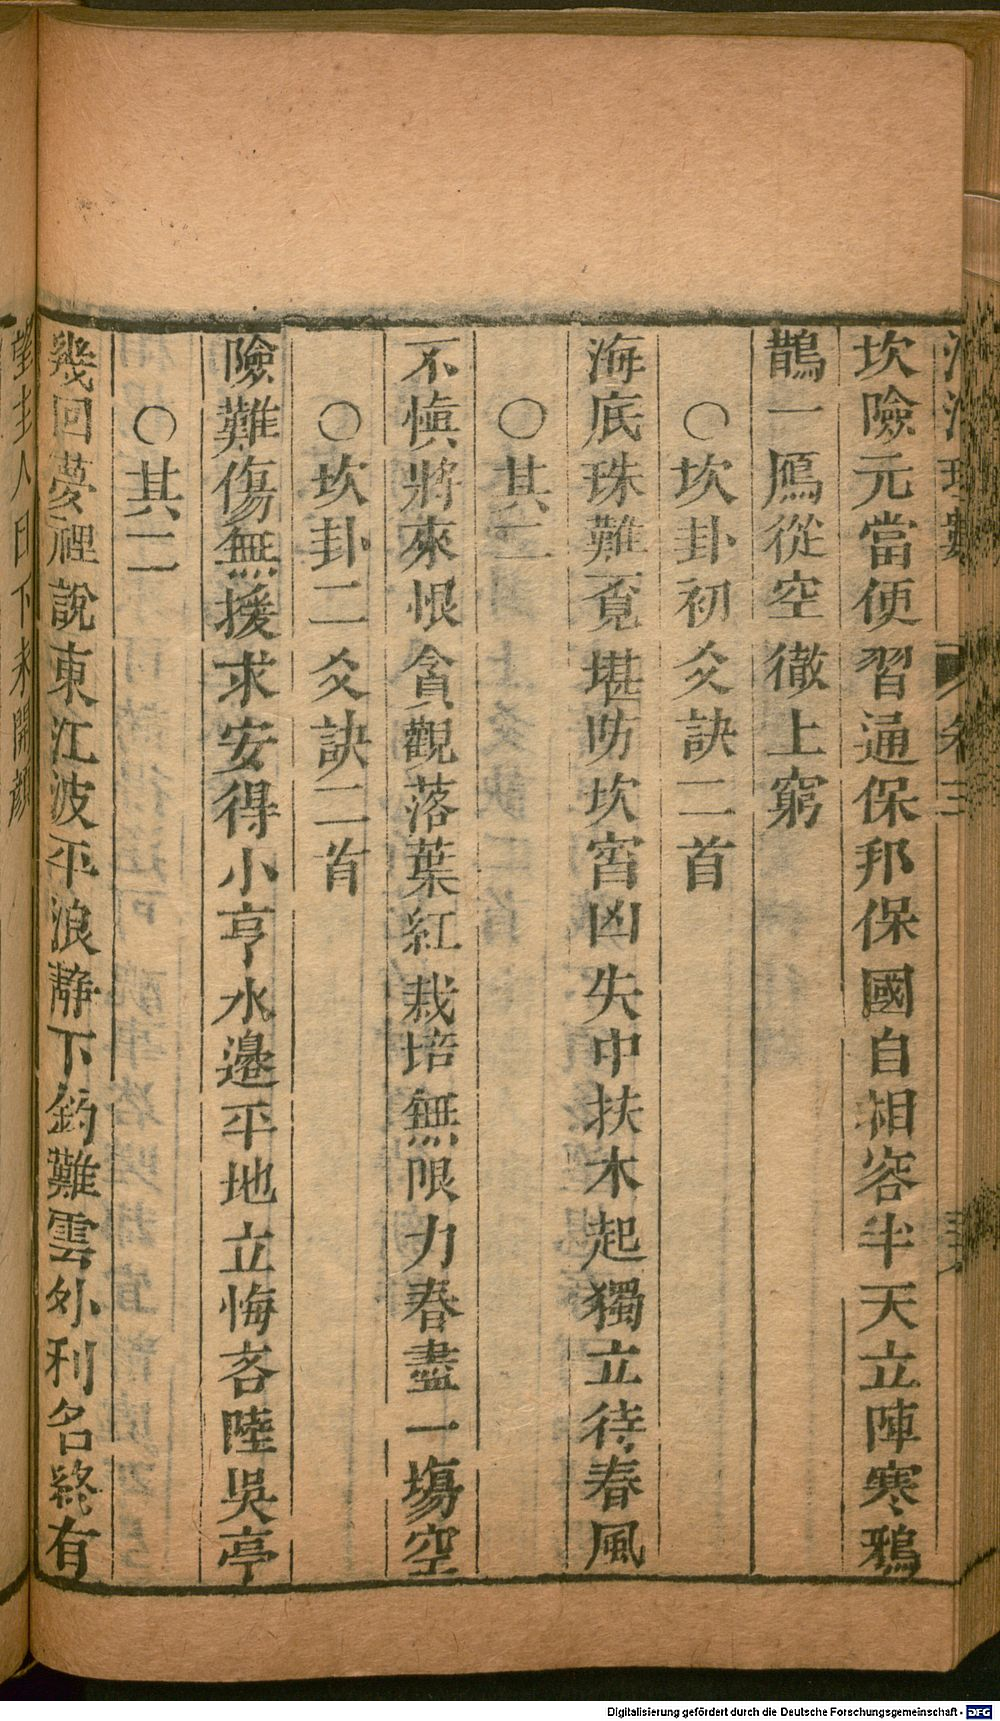 坎險元當便習通保邦保國自相容半天立陣寒鴉
鵲一鴈從空徹上窮
○坎卦初爻訣二首
海底珠難覓堪防坎窞凶失中扶木起獨立待春風
○其二
不慎將來恨貪觀落葉紅栽培無限力春盡一塲空
○坎卦二爻訣二首
險難傷無援求安得小亨水邊平地立悔吝陸吳亭
○其二
幾回夢裡說東江波平浪靜下釣難雲外利名終有
望主人日下未開顏
Digitalisierung gefördert durch die Deutsche Forschungsgemeinschaft - DFG